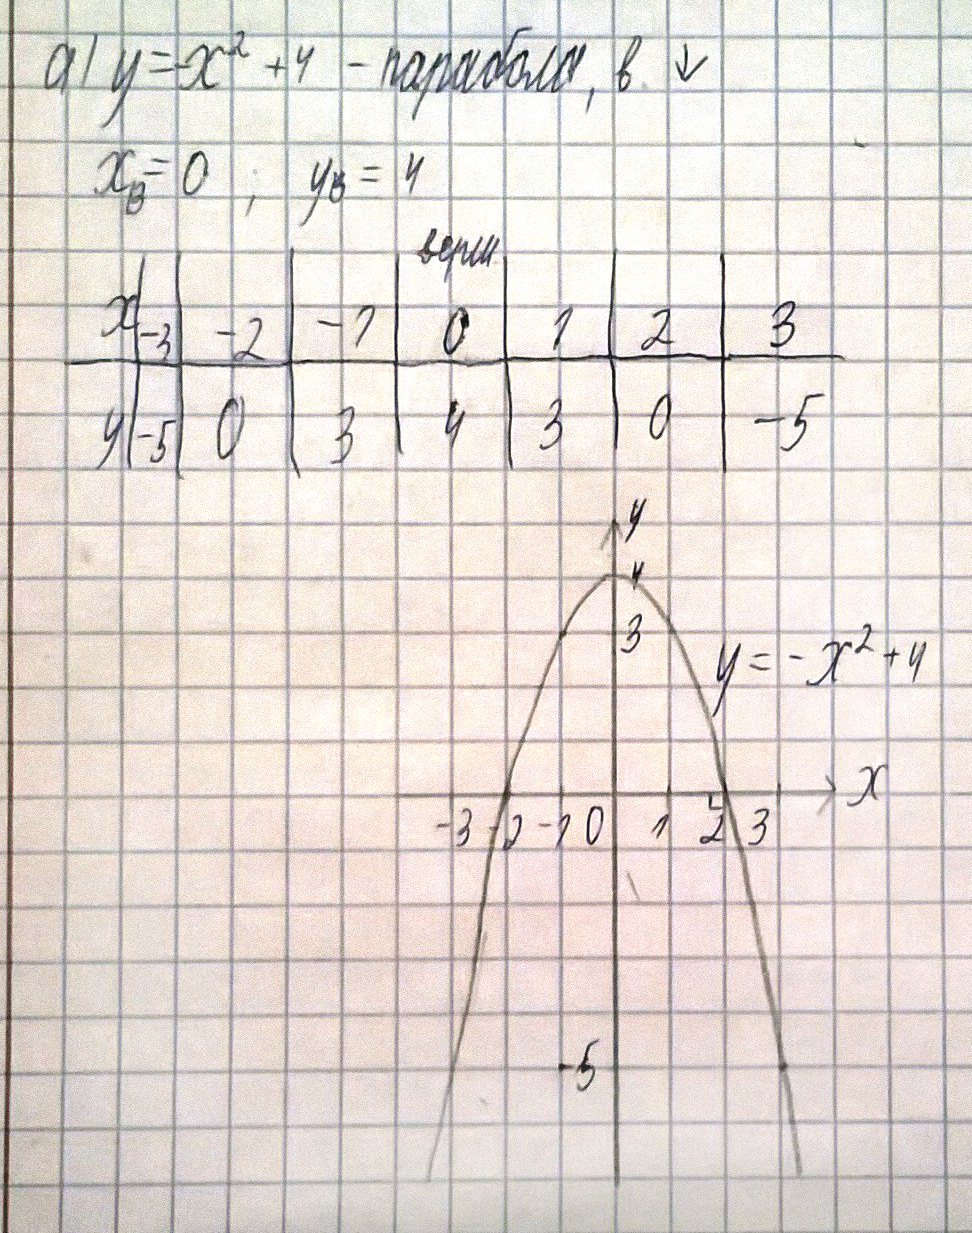 а) y = -x² + 4 - парабола, в. ↓
x_в = 0 ; y_в = 4
верш.
x -3 -2 -1 0 1 2 3
y -5 0 3 4 3 0 -5
y
4
3
y = - x² + 4
x
-3 -2 -1 0 1 2 3
-5